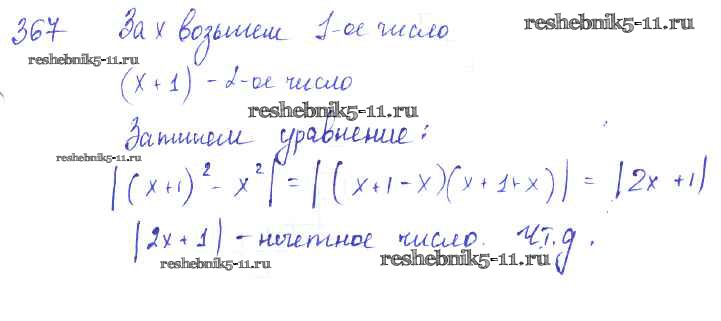 367 За x возьмем 1-ое число reshebnik5-11.ru
reshebnik5-11.ru
(x+1) - 2-ое число
reshebnik5-11.ru
Запишем уравнение:
reshebnik5-11.ru
|(x+1)² - x²| = |(x+1-x)(x+1+x)| = |2x+1|
|2x+1| - нечетное число. Ч.т.д.
reshebnik5-11.ru reshebnik5-11.ru